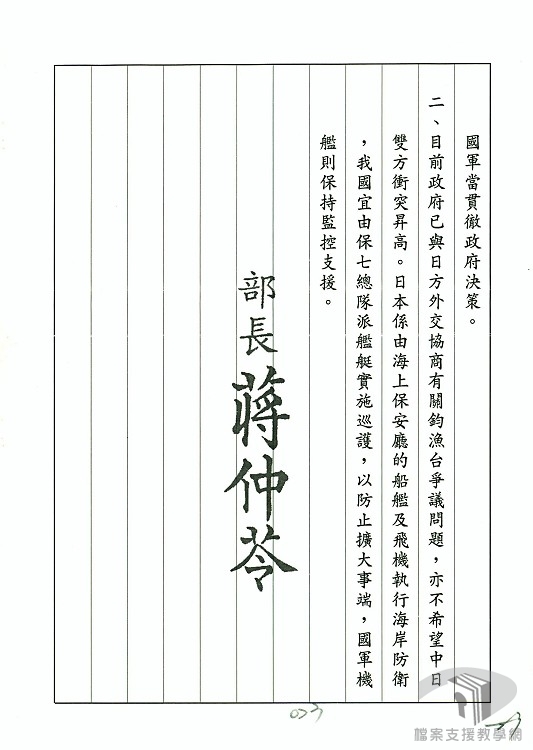 國軍當貫徹政府決策。
二、目前政府已與日方外交協商有關鈎漁台爭議問題，亦不希望中日
雙方衝突昇高。日本係由海上保安廳的船艦及飛機執行海岸防衛
，我國宜由保七總隊派艦艇實施巡護，以防止擴大事端，國軍機
艦則保持監控支援。
部長蔣仲苓
023
檔案支援教學網